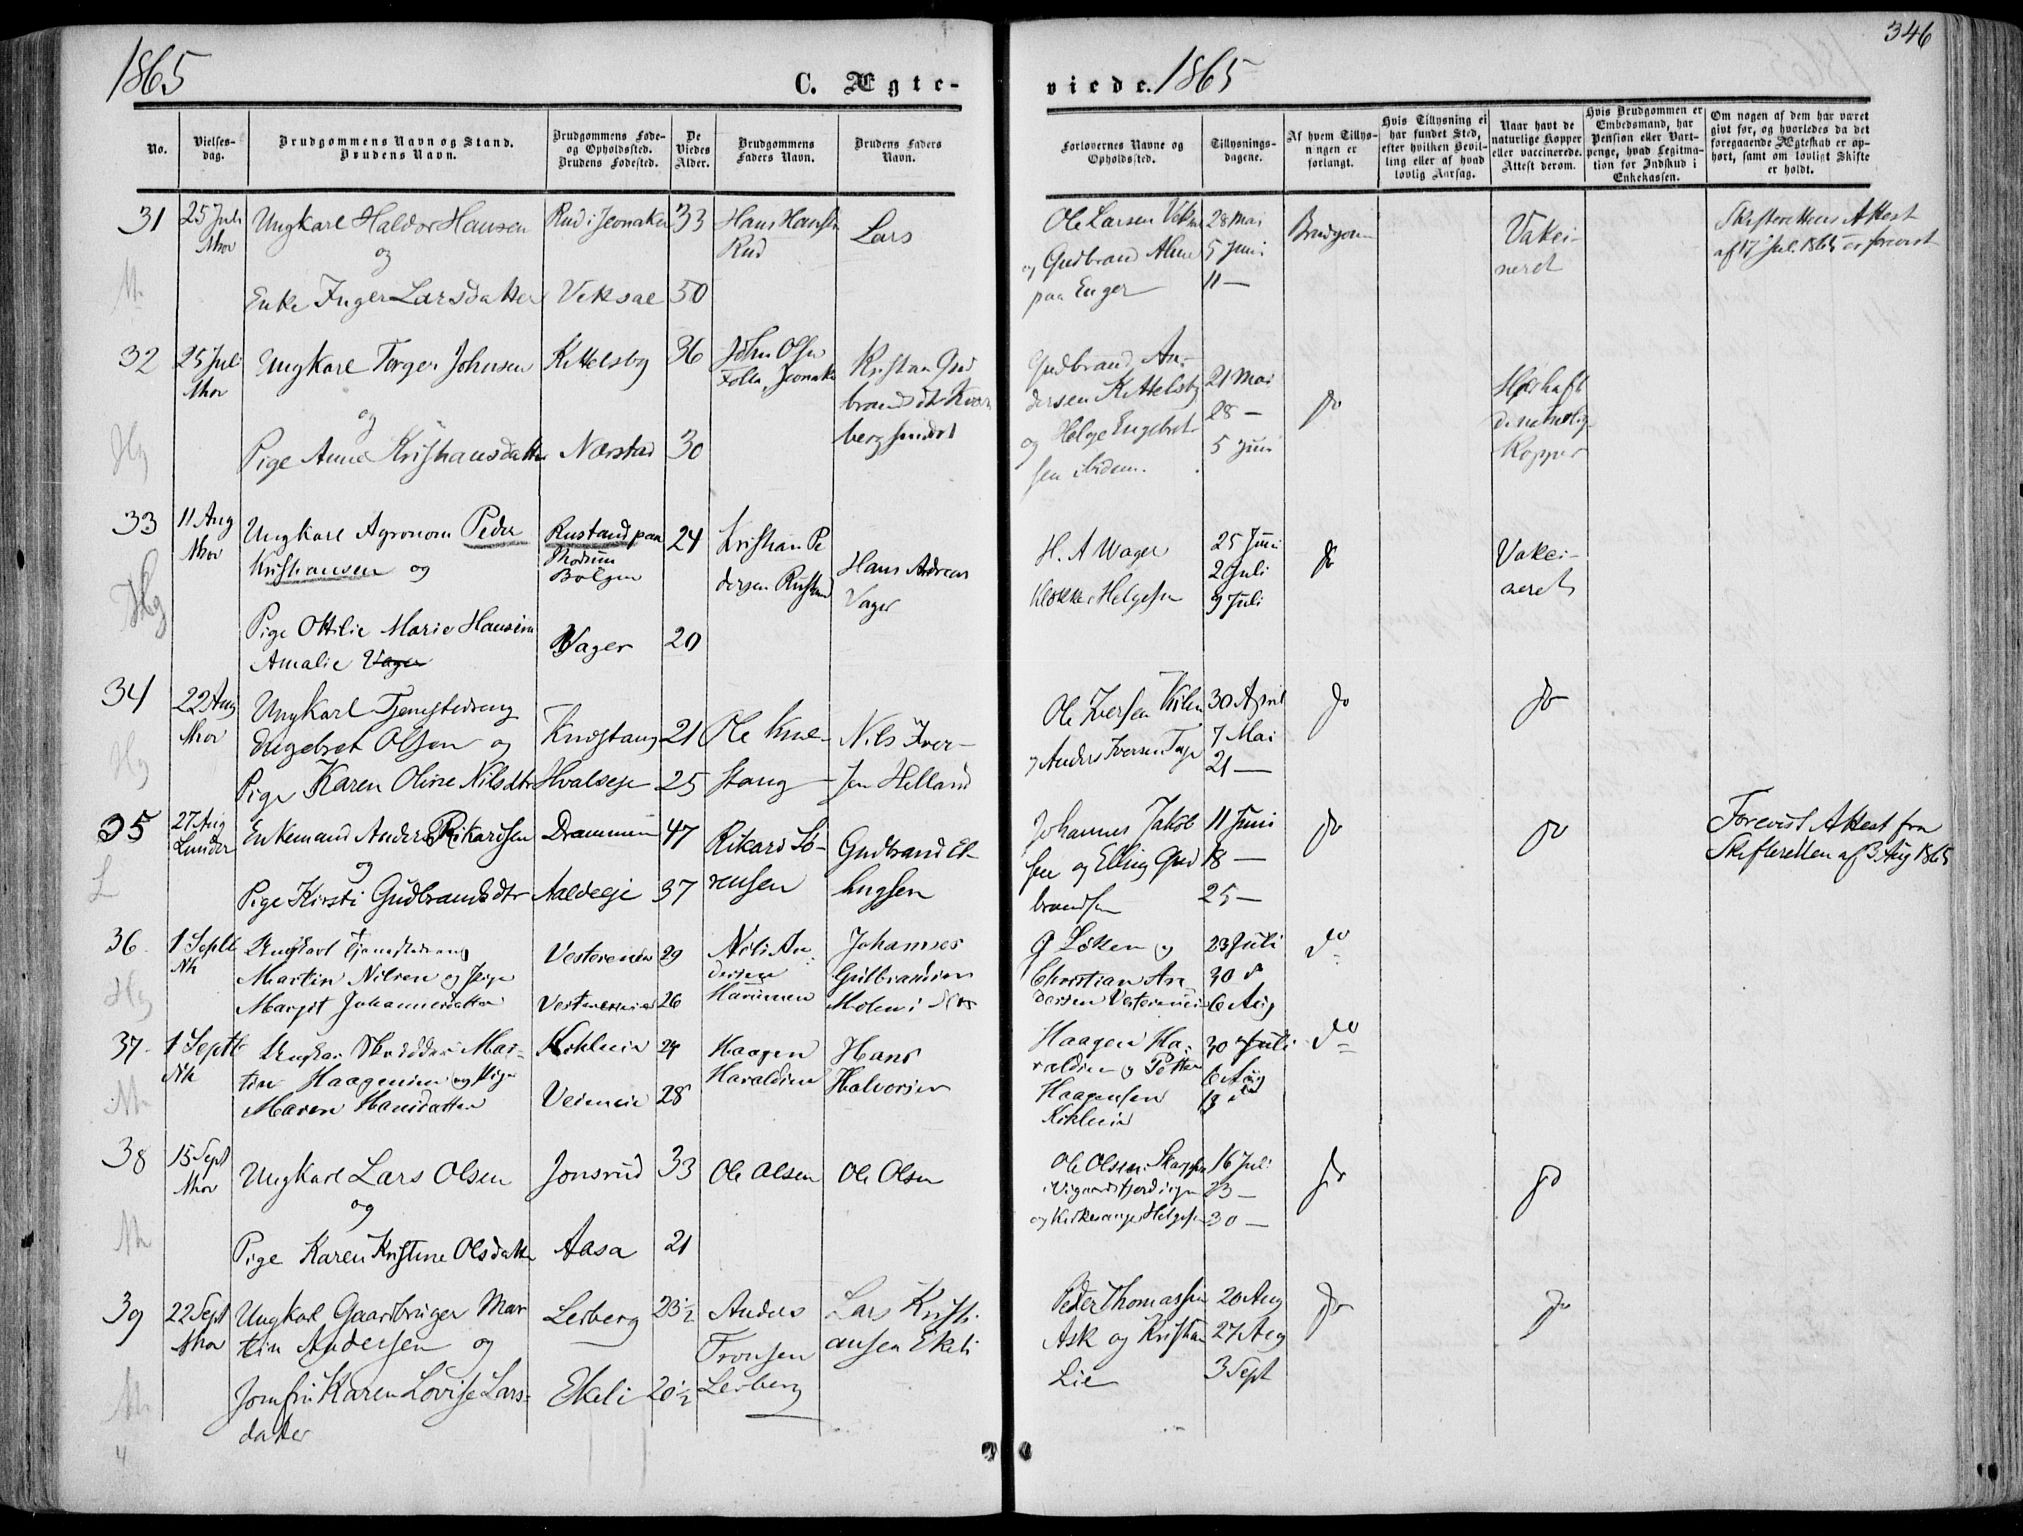 1865
C. Ægte-
No.
Vielses-
dag.
Brudgommens Navn og Stand.
Brudens Navn.
Brudgommens Føde-
og Opholdssted.
Brudens Fødested.
De
Viedes
Alder.
Brudgommens
Faders Navn.
Brudens Faders
Navn.
31
25 Juli
Nor
Ungkarl Haldor Hansen
og
Enke Inger Larsdatter
Rud i Jevnaker
Veksal
33
50
Hans Hansen
Rud
Lars
32
25 Juli
Nor
Ungkarl Torger Johnsen
og
Pige Anne Kristiansdatter
Kittelsby
Nærstad
36
30
John Olsen
Jevnaker
Kristian Gud
33
11 Aug
Nor
Ungkarl Agronom Peder
Kristiansen og
Pige Ottilie Marie Hansine
Amalie Vager
Rustand paa
Modum
Bolgen
Vager
24
20
Kristian Pe
dersen Rustand
Hans Andreas
Vager
34
22 Aug
Nor
Ungkarl Tjenestedreng
Engebret Olsen og
Pige Karen Oline Nilsdtr
Knestang
Hvalseje
21
25
Ole Kne-
stang
Nils Iver-
sen Helland
35
27 Aug
Lunder
Enkemand Anders Rikardsen
og
Pige Kirsti Gudbrandsdtr
Drammen
Aaldeeje
47
37
Rikard Sö-
rensen
Gudbrand El-
lingsen
36
1 Septb
Nk
Ungkarl Tjenestedreng
Martin Nilsen og Pige
Margit Johannesdatter
29
26
Nils An-
dersen
Johannes
Gulbrandsen
Moen i
37
1 Septb
Nk
Mar-
tin Haagensen og Pige
Maren Hansdatter
Veieneie
28
Haagen
Haraldsen
Hans
Halvorsen
38
15 Sept
Nor
Ungkarl Lars Olsen
og
Pige Karen Kristine Olsdatter
Jonsrud
Aasa
33
21
Ole Olsen
Ole Olsen
39
22 Sept
Nor
Ungkarl Gaardbruger Mar
tin Andersen og
Jomfru Karen Lovise Lars-
datter
Lesberg
Ekeli
23½
20½
Anders
Tronsen
Lesberg
Lars Kristi
ansen Ekeli
346
viede. 1865
Forlovernes Navne og
Opholdssted.
Tillysnings-
dagene.
Af hvem Tillys-
ningen er
forlangt.
Hvis Tillysning ei
har fundet Sted,
efter hvilken Bevil-
ling eller af hvad
lovlig Aarsag.
Naar havt de
naturlige Kopper
eller vaccinerede.
Attest derom.
Hvis Brudgommen er
Embedsmand, har
Pension eller Vart-
penge, hvad Legitima-
tion for Indskud i
Enkekassen.
Om nogen af dem har været
givt før, og hvorledes da det
foregaaende Ægteskab er op-
hørt, samt om lovligt Skifte
er holdt.
Ole Larsen
og Gudbrand
paa Enger
28 Mai
5 Juni
11 —
Brudgom
Vakci-
neret
Skifterettens Attest
af 17 Juli 1865 er forevist
Gudbrand An-
dersen Kittelsby
og Helge Engebret-
sen ibidem.
21 Mai
28 —
5 Juni
do
Kopper
H. A Wager
Klokker Helgesen
25 Juni
2 Juli
9 Juli
do
Vakci-
neret
Ole Iversen
Anders Iversen
30 April
7 Mai
21 —
do
do
Johannes Jakob
sen og Elling Gud
brandsen
11 Juni
18 —
25 —
do
do
Forevist Attest fra
Skifteretten af 3 Aug 1865
G Løken og
Christian An-
dersen
23 Juli
30 d
6 Aug
do
Haagen Ha-
raldsen og Petter
Haagensen
30 Juli
6 Aug
13 do
do
Ole Olsen
og Kirkesanger Helgesen
16 Juli
23 —
30 —
do
do
Peder Thomassen
Ask og Kristian
Lie
20 Aug
27 Aug
3 Sept
do
do